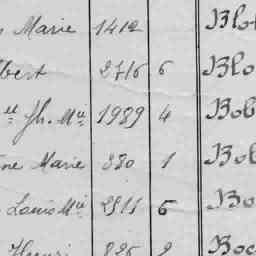 Marie 1412 Blo
bert 2716 6 Blo
Jh. Mie 1989 4 Bob
ne Marie 330 1 Bob
Louis Mie 2511 6 Bo
Henri 826 2 Boc